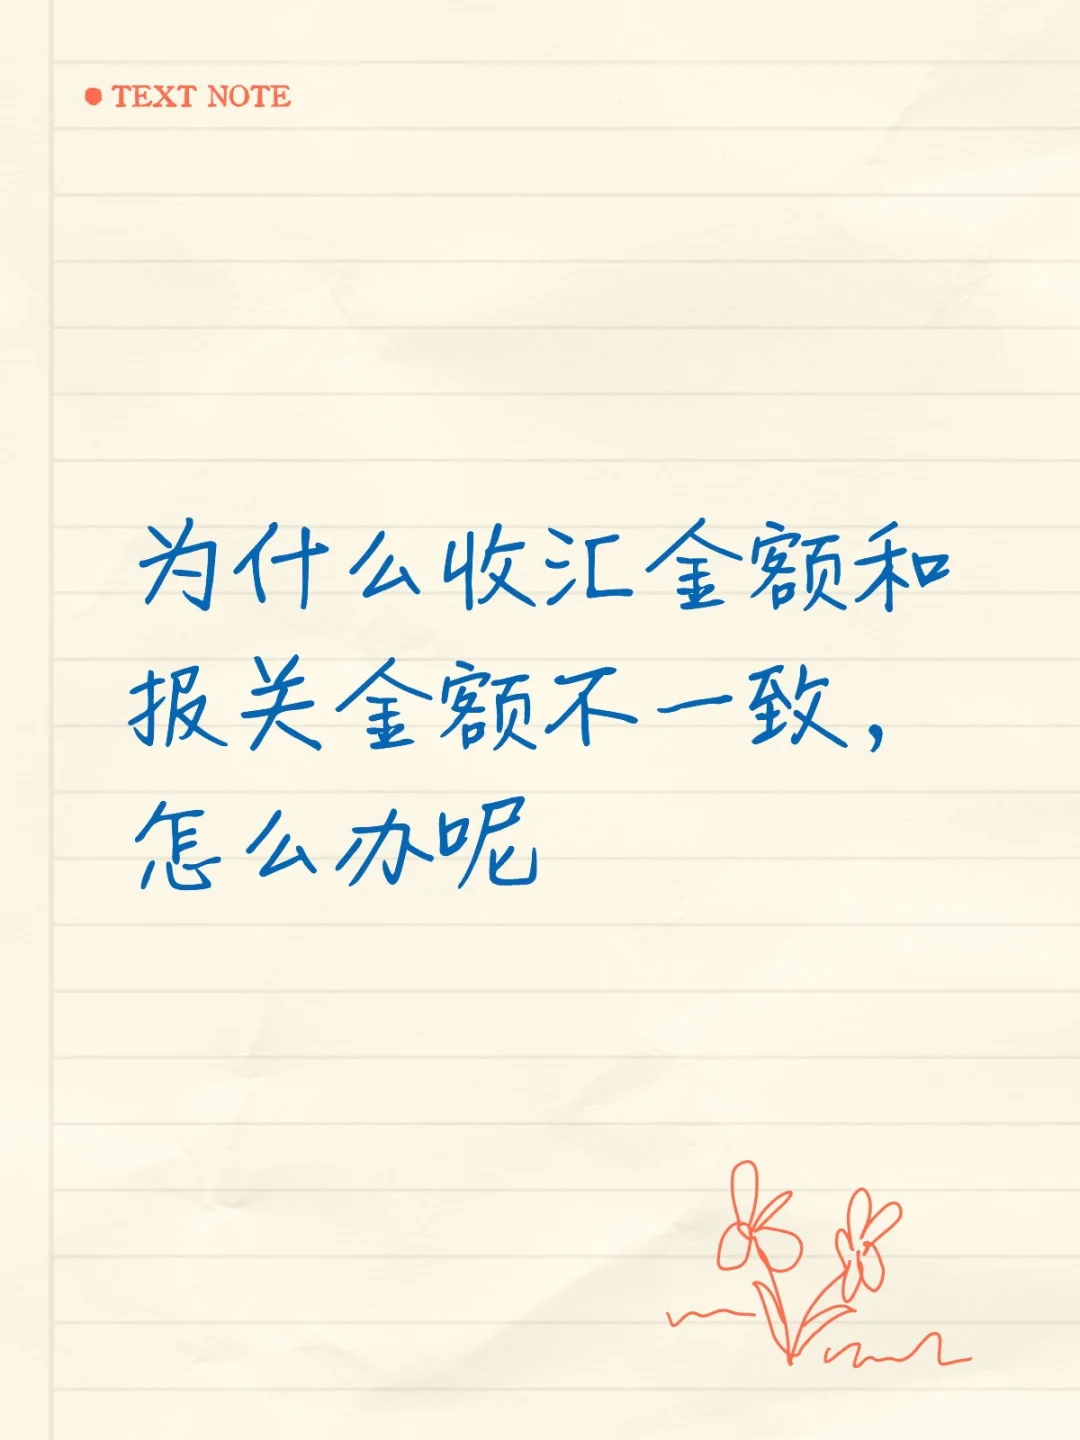 TEXT NOTE
为什么收汇金额和
报关金额不一致，
怎么办呢